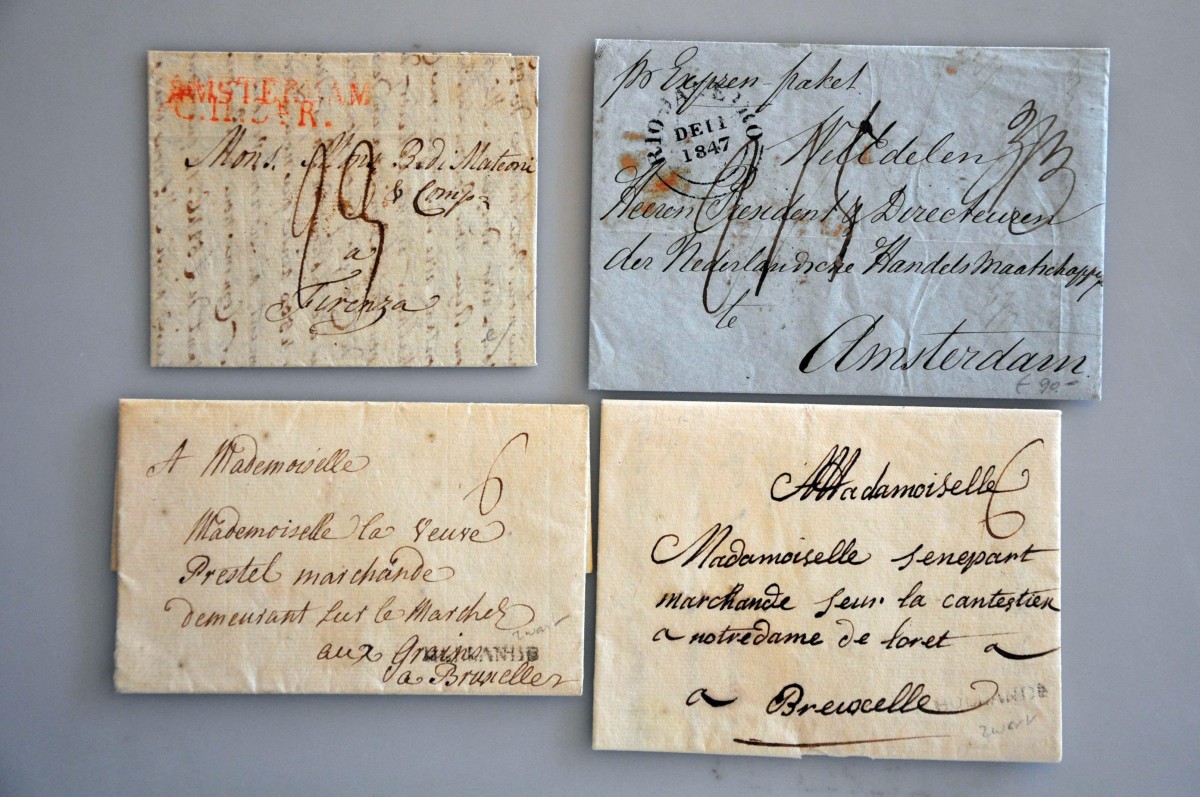 AMSTERDAM
C.H.D.V.R.
Mons. Mons B. di Mateoni
& Comp.
a
Firenza
pr Expren-paket
RIO DA JANEIRO
DE 11
1847
WelEdelen
Heeren President & Directeuren
der Nederlandsche Handels Maatschappy
te
Amsterdam
€ 90-
A Mademoiselle
6
Mademoiselle la veuve
Prestel marchande
demeurant sur le Marchez
aux Grains
zwart
a Bruxelles
Madamoiselle
6
Madamoiselle Senepart
marchande seur la cantestien
a notredame de loret a
a Breuxelle
HOLLANDE
zwart